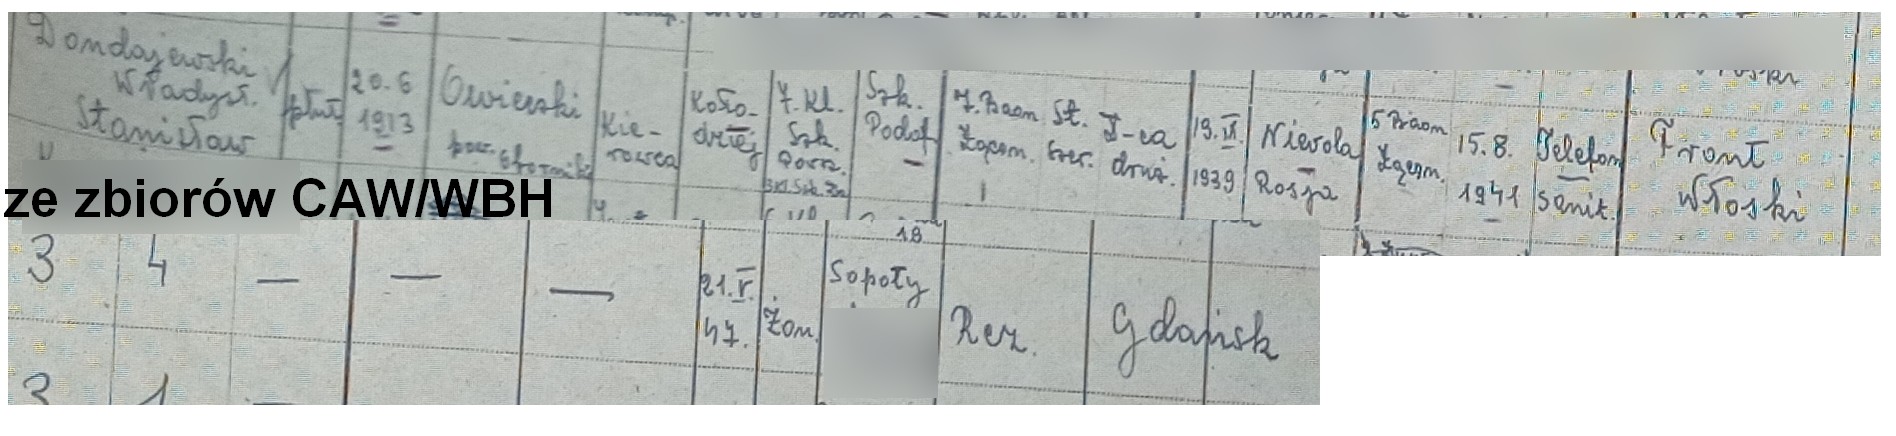 Dondajewski
Władysł.
Stanisław
plut.
20.6
1913
Owieński
pow.
Kie-
rowca
Koło-
dziej
7. kl.
Szk.
Powsz.
Szk.
Podof.
7. Baon St.
Łączn. szer.
D-ca
druż.
19.IX.
1939
Niewola
Rosja
5 Baon
Łączn.
15.8.
1941
Telefon
sanit.
Front
Włoski
ze zbiorów CAW/WBH
3
4
—
—
—
21.V.
47.
Żon.
18
Sopoty
Rez.
Gdańsk
3
1